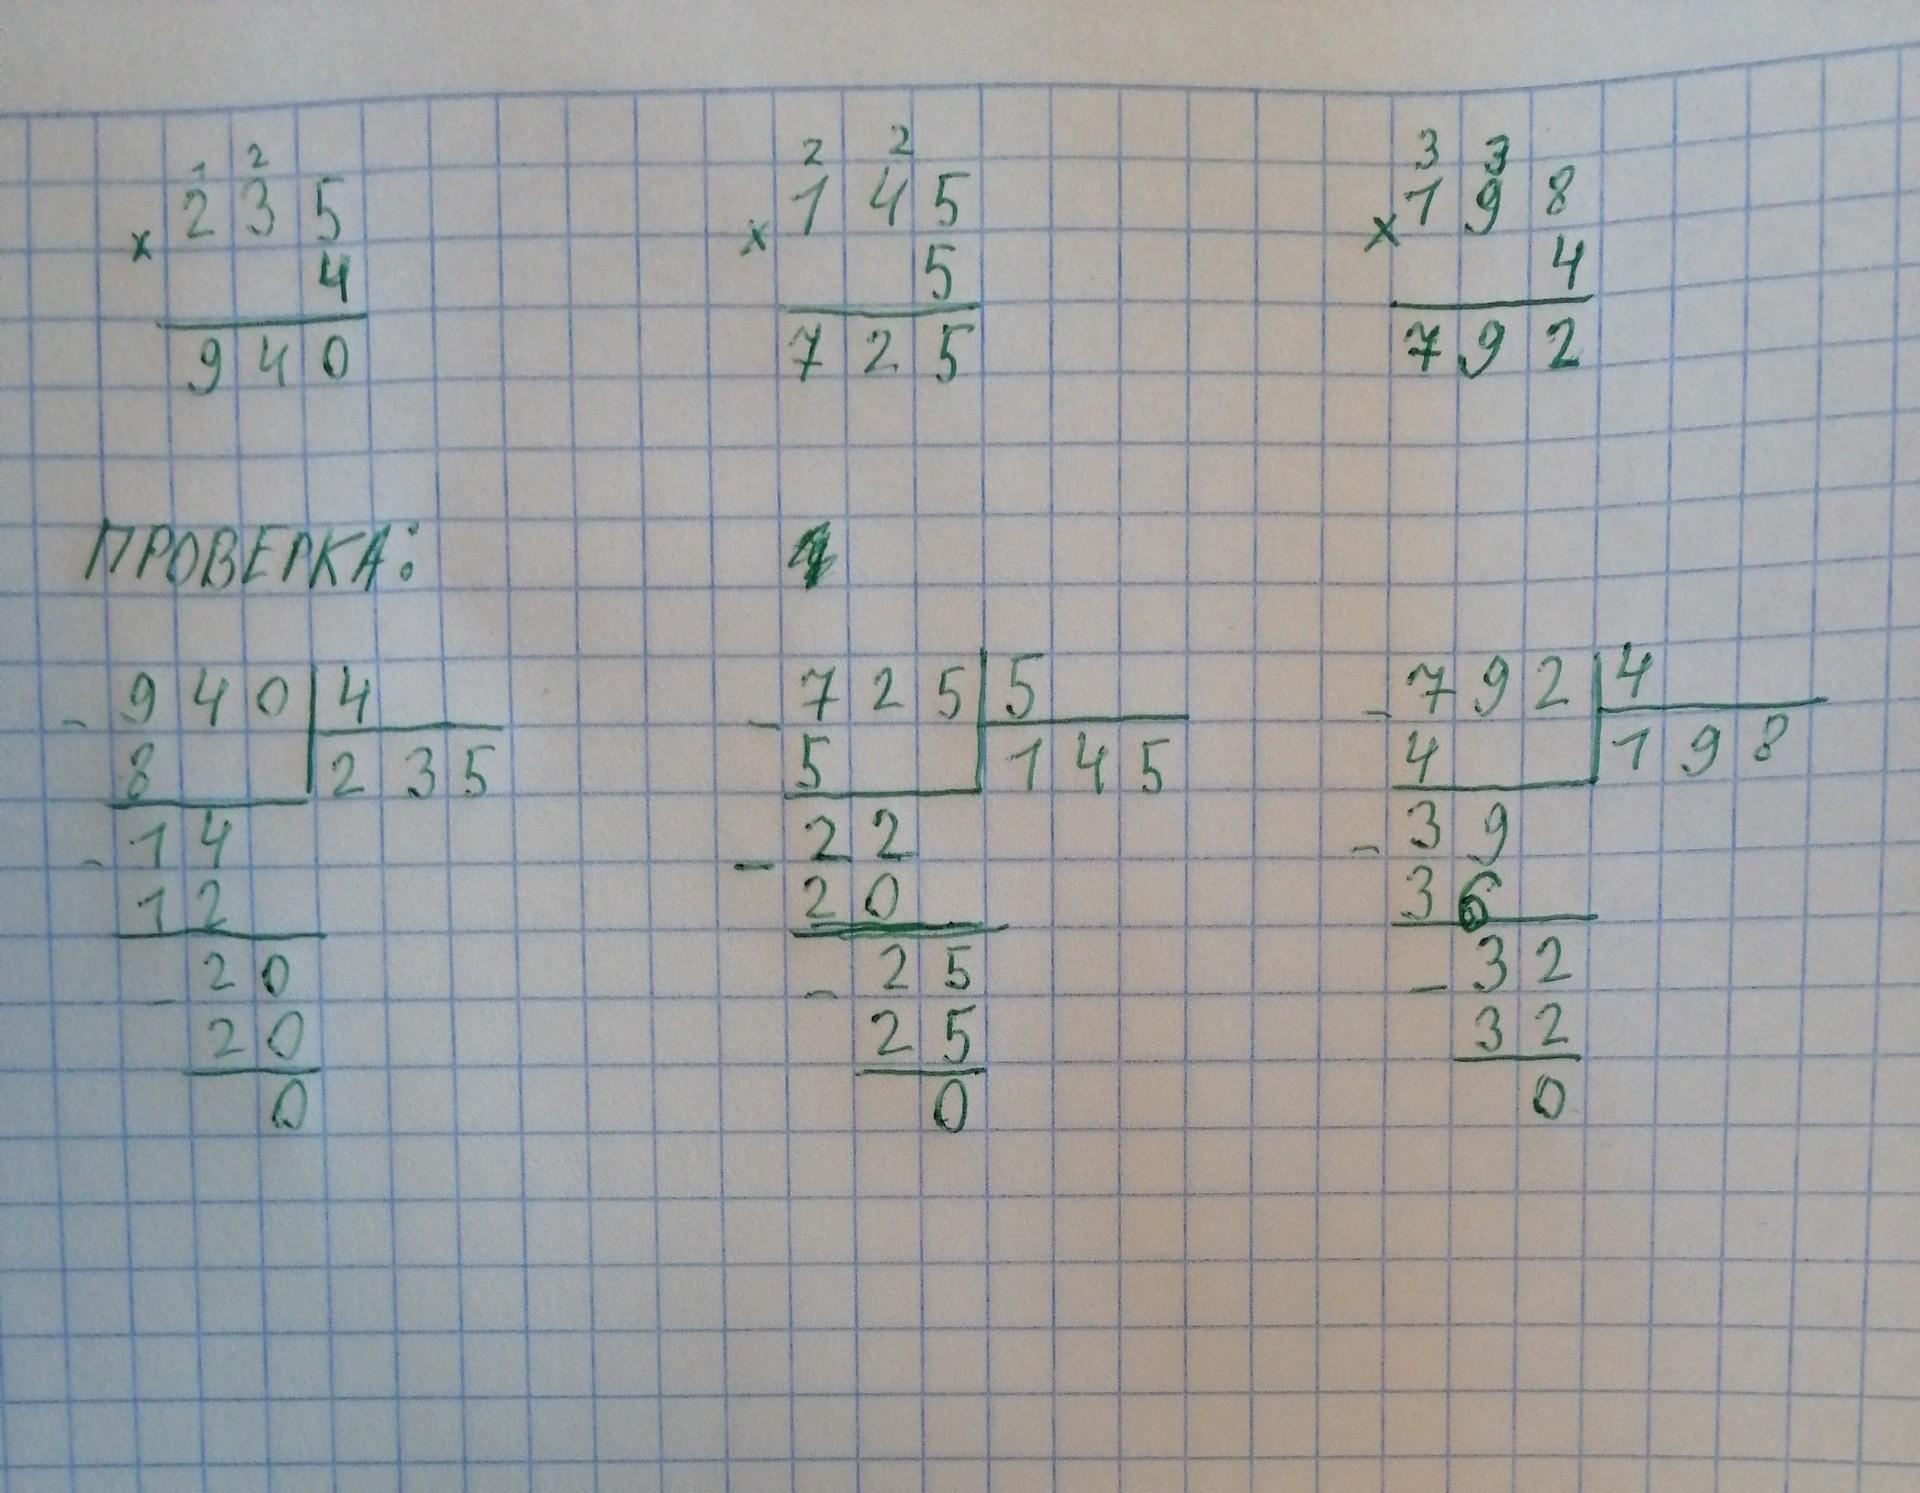 1 2
× 2 3 5
4
9 4 0
2 2
× 1 4 5
5
7 2 5
3 3
× 1 9 8
4
7 9 2
ПРОВЕРКА:
- 9 4 0 | 4
8 | 2 3 5
- 1 4
1 2
- 2 0
2 0
0
- 7 2 5 | 5
5 | 1 4 5
- 2 2
2 0
- 2 5
2 5
0
- 7 9 2 | 4
4 | 1 9 8
- 3 9
3 6
- 3 2
3 2
0